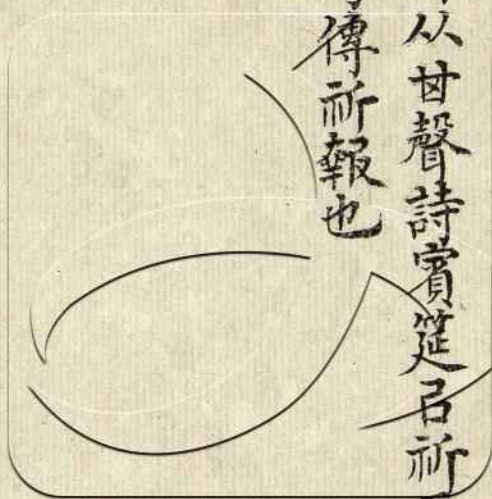 从甘聲詩賓筵㠯祈
傳祈報也